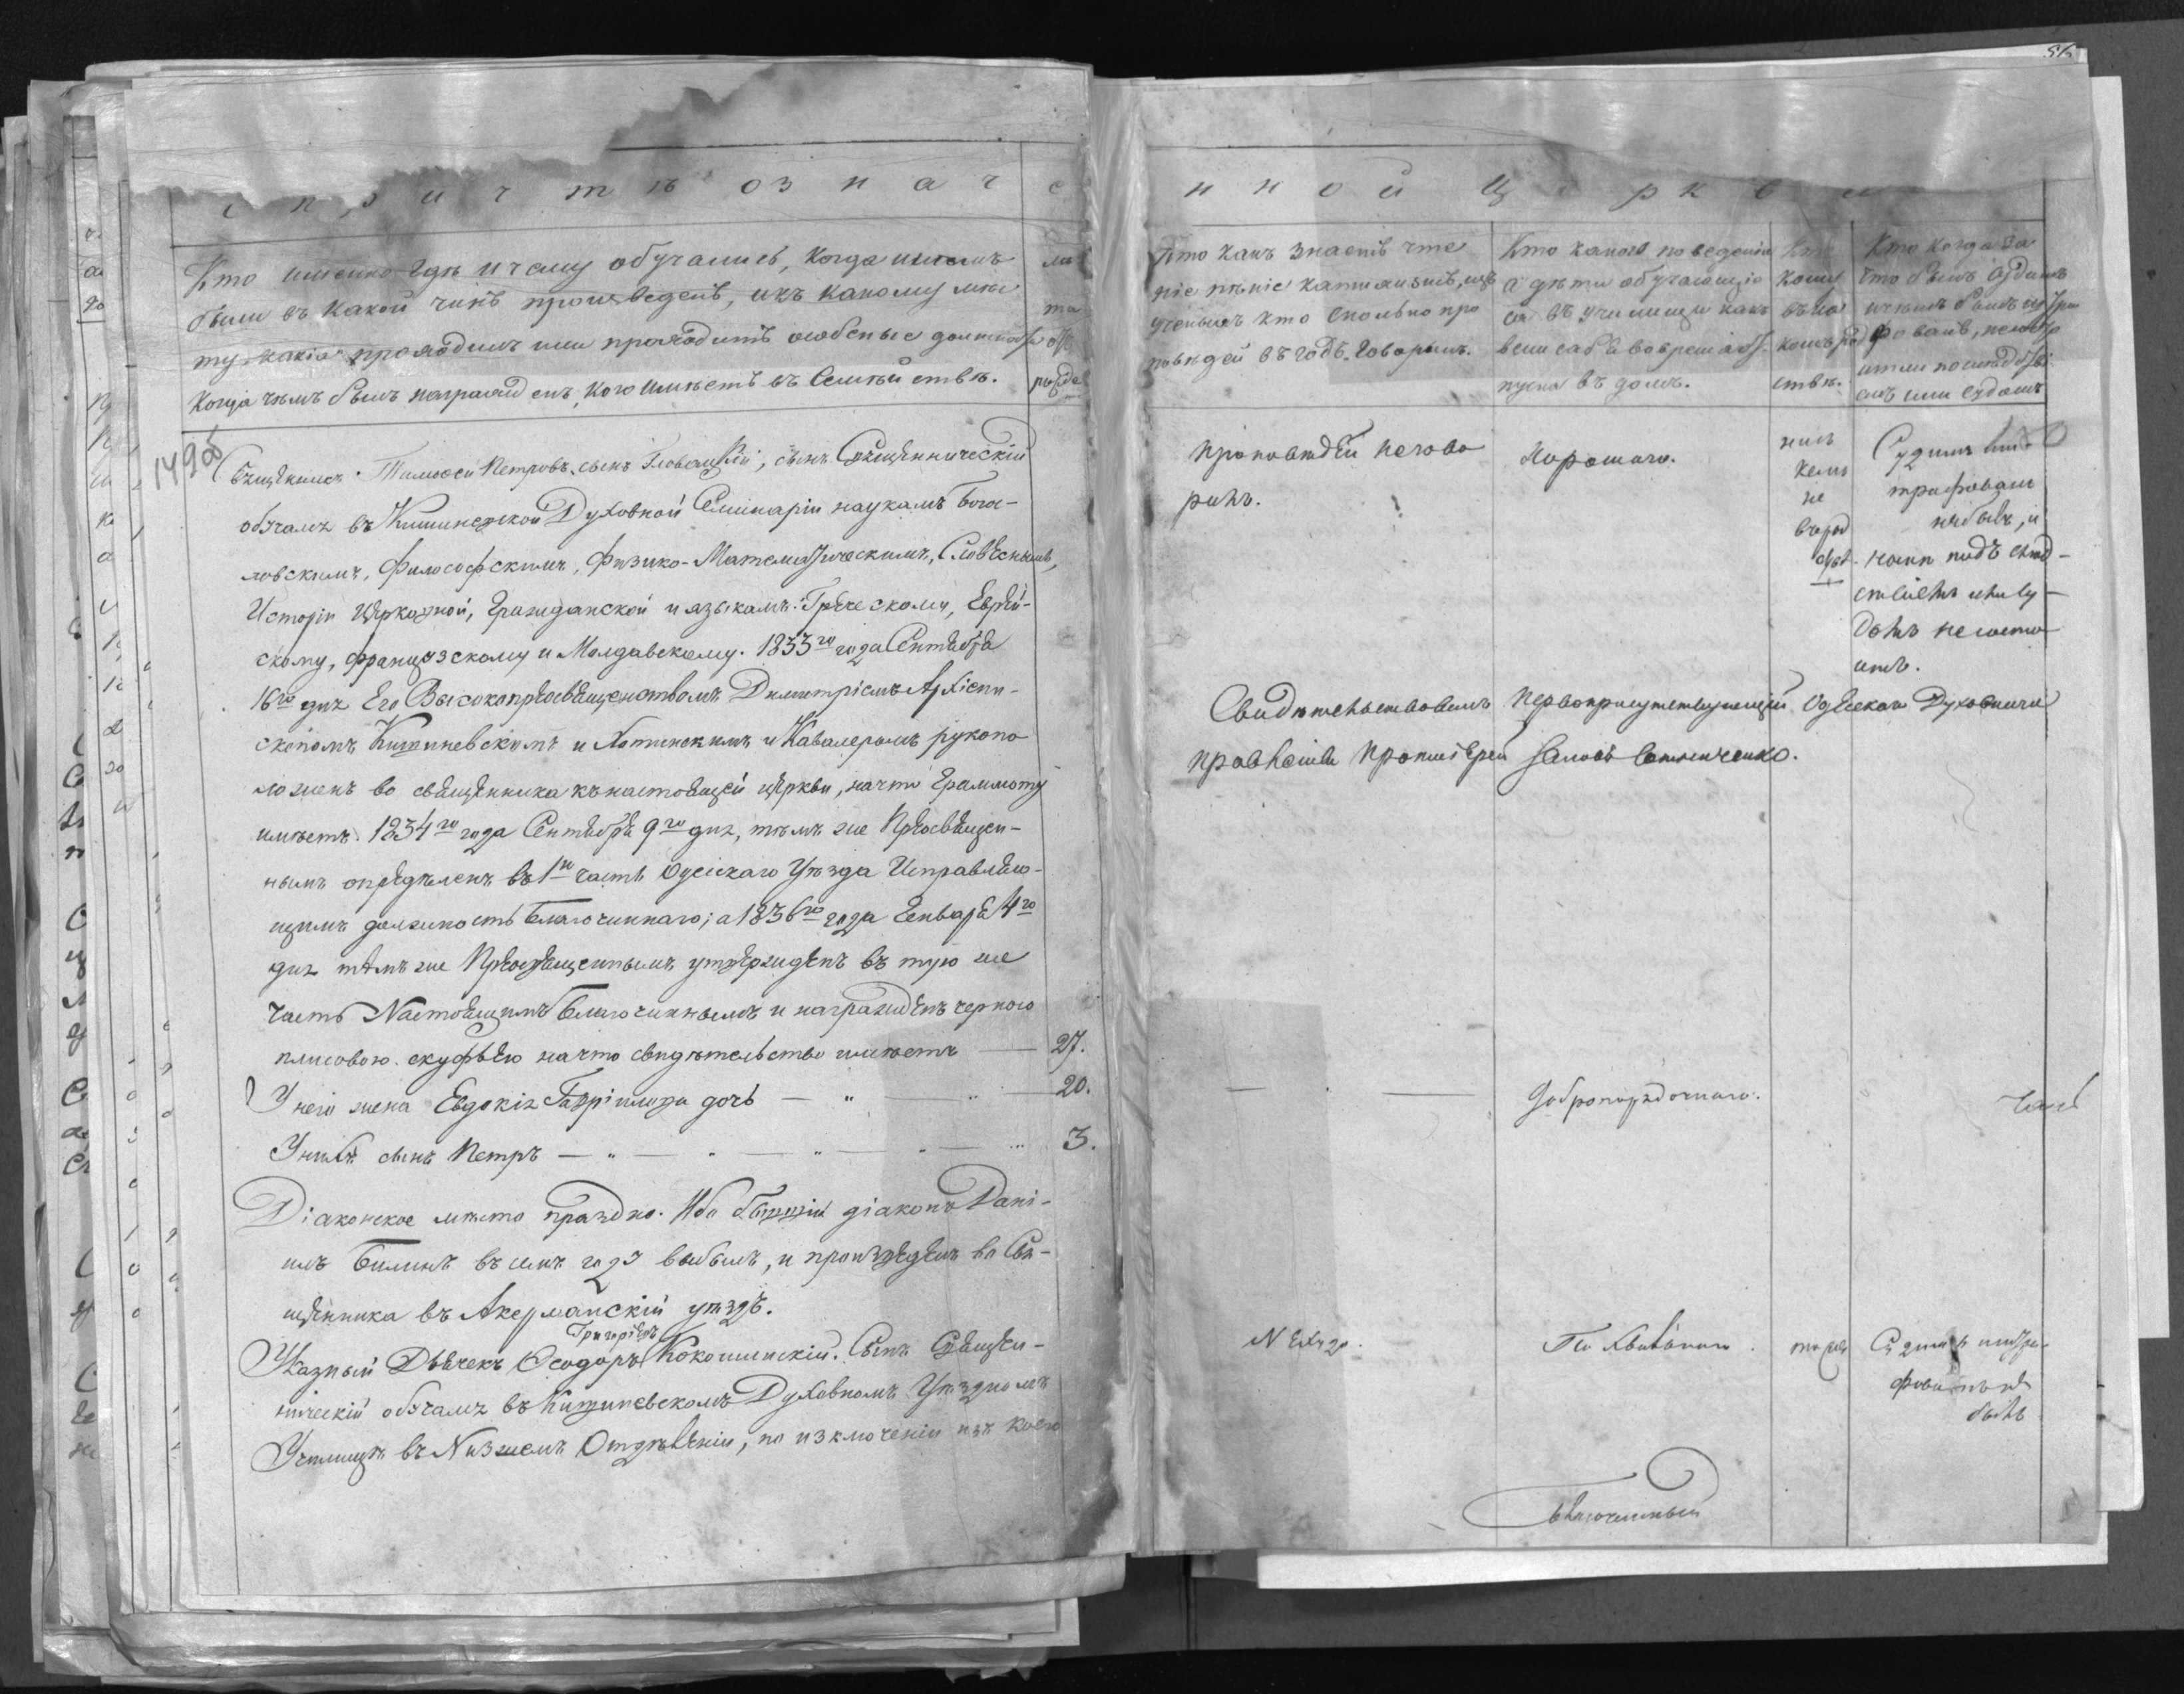 56
о причтѣ означе
нной церкви
Кто именно гдѣ и чему обучались, когда и кѣмъ
были въ какой чинъ произведенъ, и къ какому мѣс
ту, какія проходилъ или проходитъ особеные должнос
Когда чѣмъ былъ награжденъ, кого имѣетъ въ Семѣйствѣ.
лѣ
та
отъ
рожде
Кто какъ знаетъ чте
ніе пѣніе катихизисъ,
ученыхъ кто сколько про
повѣдей въ годъ говорилъ.
Кто какого поведенія
а дѣти обучающіе
ся въ училищи какъ
вели себя во время от
пуска въ домъ.
Кто
кому
въ ка
комъ род
ствѣ.
Кто когда за
что былъ судимъ
и чѣмъ былъ штра
фованъ, не
или по слѣдстві
емъ или судомъ
149об
Священникъ Тимоѳей Петровъ сынъ Гловацкій, сынъ Священническій
обучался въ Кишиневской Духовной Семинаріи наукамъ Бого-
ловскимъ, Философскимъ, Физико-Математическимъ, Словеснымъ,
Исторіи Церковной, Гражданской и языкамъ: Греческому, Еврей-
скому, Французскому и Молдавскому. 1833го года Сентября
16го дня Его Высокопреосвященствомъ Димитріемъ Архіепи-
скопомъ Кишиневскимъ и Хотинскимъ и Кавалеромъ рукопо
ложенъ во священника къ настоящей церкви, на что Граммоту
имѣетъ. 1834го года Сентября 9го дня, тѣмъ же Преосвящен-
нымъ опредѣленъ въ 1ю часть Одескаго Уѣзда Исправляю-
щимъ должность Благочиннаго; а 1836го года Генваря 4го
дня тѣмъ же Преосвященнымъ утвержденъ въ тую же
часть Настоящимъ Благочиннымъ и награжденъ черною
плисовою скуфьею на что свидѣтельство имѣетъ — 27.
У него жена Евдокія Гавріилова дочь — 20.
У нихъ сынъ Петръ — 3.
Діаконское мѣсто праздно. Ибо бывшій діаконъ Дані-
илъ Билинъ въ семъ году выбылъ, и произведенъ во Свя-
щенника въ Акерманскій уѣздъ.
Григоріевъ
Указный Дьячекъ Ѳеодоръ Кокошинскій. Сынъ Священ-
ническій обучался въ Кишиневскомъ Духовномъ Уѣздномъ
Училищѣ въ Низшемъ Отдѣленіи, по изключеніи изъ коего
проповѣдей не гово
рилъ.
Хорошаго.
ни съ
кемъ
не
въ род
ствѣ
Судимъ и ш
трафованъ
не былъ, и
подъ слѣд-
ствіемъ и су-
домъ не состо
итъ.
Свидѣтельствовалъ Первоприсутствующій Одескаго Духовнаго
Правленія Протоіерей
Добропорядочнаго.
тожъ
Не худо.
По хвальнаго.
тоже
Судимъ и штра-
фованъ не
былъ
Благочинный